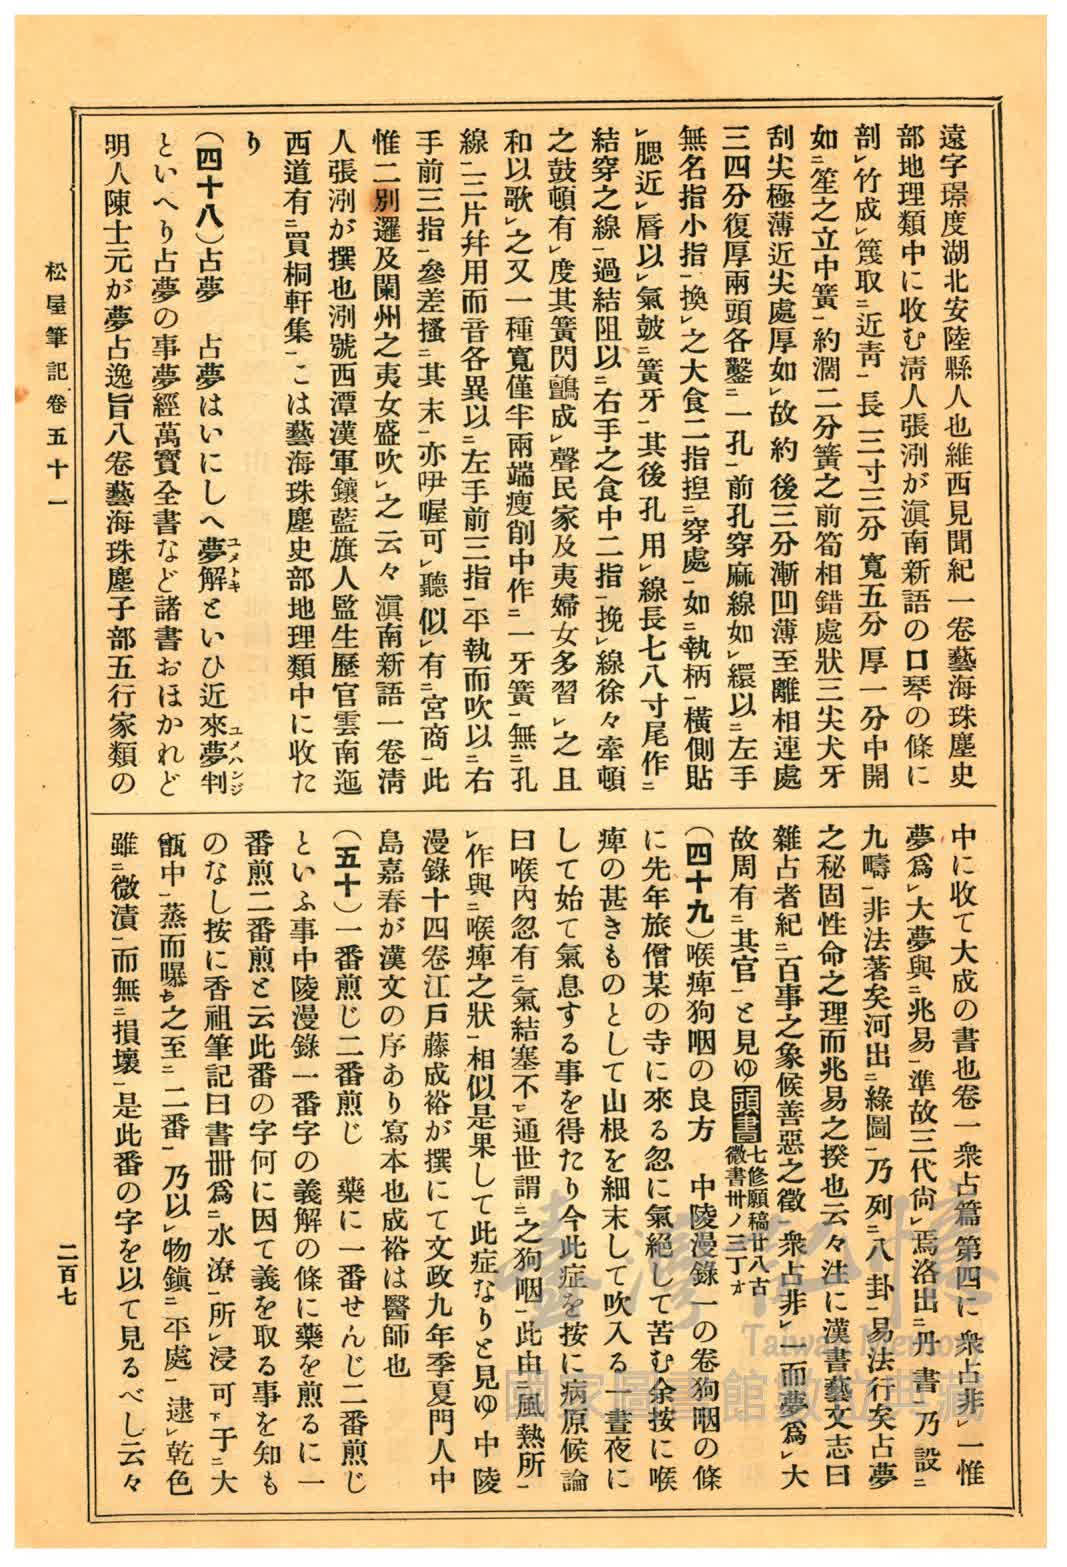 遠字璟度湖北安陸縣人也維西見聞紀一卷藝海珠塵史
部地理類中に收む淸人張泓が滇南新語の口琴の條に
剖㆑竹成㆑篾取㆓近靑㆒長三寸三分寬五分厚一分中開
如㆓笙之立中簧㆒約濶二分簧之前筍相錯處狀三尖犬牙
刮尖極薄近尖處厚如㆑故約後三分漸凹薄至離相連處
三四分復厚兩頭各鑿㆓一孔㆒前孔穿麻線如㆑繯以㆓左手
無名指小指㆒換㆑之大食二指揑㆓穿處㆒如㆓執柄㆒橫側貼
㆑腮近㆑唇以㆑氣鼓㆓簧牙㆒其後孔用㆑線長七八寸尾作㆓
結穿之線㆒過結阻以㆓右手之食中二指㆒挽㆑線徐々牽頓
之鼓頓有㆑度其簧閃鸕成㆑聲民家及夷婦女多習㆑之且
和以歌㆑之又一種寬僅半兩端瘦削中作㆓一牙簧㆒無㆓孔
線㆒三片幷用而音各異以㆓左手前三指㆒平執而吹以㆓右
手前三指㆒參差搔㆓其末㆒亦咿喔可㆑聽似㆑有㆓宮商㆒此
惟二別邏及闌州之夷女盛吹㆑之云々滇南新語一卷淸
人張泓が撰也泓號西潭漢軍鑲藍旗人監生歷官雲南迤
西道有㆓買桐軒集㆒こは藝海珠塵史部地理類中に收た
り
(四十八)占夢　占夢はいにしへ夢解ユメトキといひ近來夢判ユメハンジ
といへり占夢の事夢經萬寶全書など諸書おほかれど
明人陳士元が夢占逸旨八卷藝海珠塵子部五行家類の
中に收て大成の書也卷一衆占篇第四に衆占非㆑一惟
夢爲㆑大夢與㆓兆易㆒準故三代尙㆑焉洛出㆓丹書㆒乃設㆓
九疇㆒非法著矣河出㆓綠圖㆒乃列㆓八卦㆒易法行矣占夢
之秘固性命之理而兆易之揆也云々注に漢書藝文志曰
雜占者紀㆓百事之象候善惡之徵㆒衆占非㆑一而夢爲㆑大
故周有㆓其官㆒と見ゆ頭書七修願稿廿八古
徵書卅ノ三丁オ
(四十九)喉痺狗咽の良方　中陵漫錄一の卷狗咽の條
に先年旅僧某の寺に來る忽に氣絕して苦む余按に喉
痺の甚きものとして山根を細末して吹入る一晝夜に
して始て氣息する事を得たり今此症を按に病原候論
曰喉內忽有㆓氣結塞不㆑通世謂㆓之狗咽㆒此由風熱所㆒
㆑作與㆓喉痺之狀㆒相似是果して此症なりと見ゆ中陵
漫錄十四卷江戶藤成裕が撰にて文政九年季夏門人中
島嘉春が漢文の序あり寫本也成裕は醫師也
(五十)一番煎じ二番煎じ　藥に一番せんじ二番煎じ
といふ事中陵漫錄一番字の義解の條に藥を煎るに一
番煎二番煎と云此番の字何に因て義を取る事を知も
のなし按に香祖筆記曰書册爲㆓水潦㆒所㆑浸可㆘于㆓大
甑中㆒蒸而曝ち之至㆓二番㆒乃以㆑物鎭㆓平處㆒逮㆑乾色
雖㆓微漬㆒而無㆓損壞㆒是此番の字を以て見るべし云々
松屋筆記卷五十一
二百七
臺灣記憶
Taiwan Memory
國家圖書館數位典藏